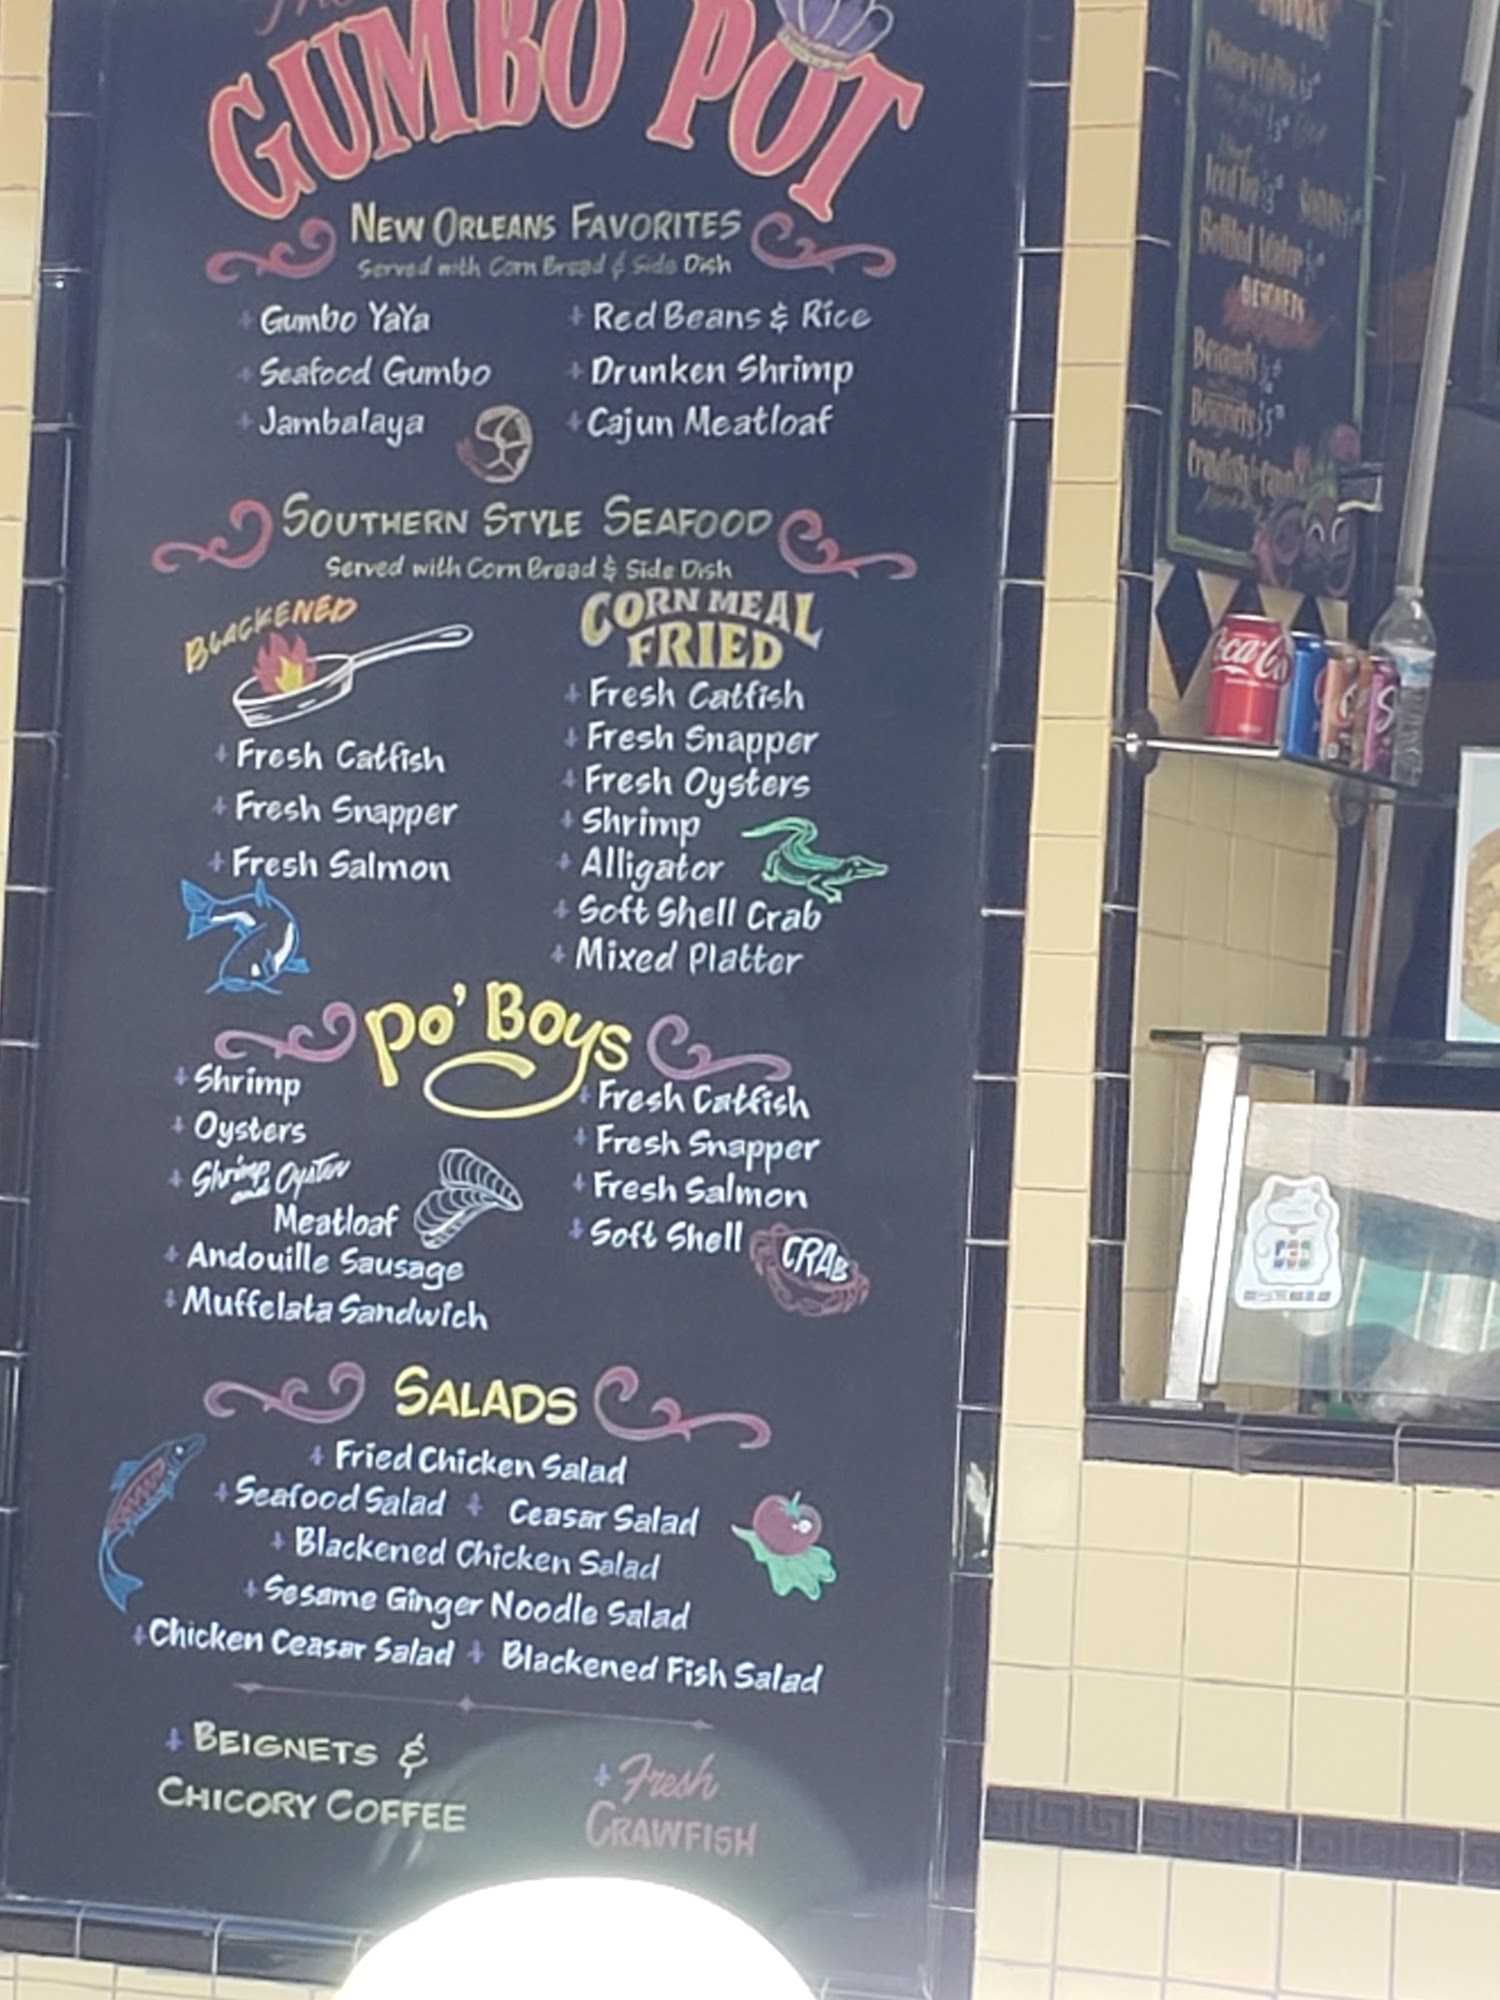 The
GUMBO POT
NEW ORLEANS FAVORITES
Served with Corn Bread & Side Dish
Gumbo YaYa
Seafood Gumbo
Jambalaya
Red Beans & Rice
Drunken Shrimp
Cajun Meatloaf
SOUTHERN STYLE SEAFOOD
Served with Corn Bread & Side Dish
BLACKENED
Fresh Catfish
Fresh Snapper
Fresh Salmon
CORN MEAL
FRIED
Fresh Catfish
Fresh Snapper
Fresh Oysters
Shrimp
Alligator
Soft Shell Crab
Mixed Platter
Po' Boys
Shrimp
Oysters
Shrimp and Oyster
Meatloaf
Andouille Sausage
Muffelata Sandwich
Fresh Catfish
Fresh Snapper
Fresh Salmon
Soft Shell CRAB
SALADS
Fried Chicken Salad
Seafood Salad Ceasar Salad
Blackened Chicken Salad
Sesame Ginger Noodle Salad
Chicken Ceasar Salad Blackened Fish Salad
BEIGNETS &
CHICORY COFFEE
Fresh
CRAWFISH
Iced Tea
Bottled Water
BEIGNETS
Beignets
Beignets
Coca-Cola
JCB